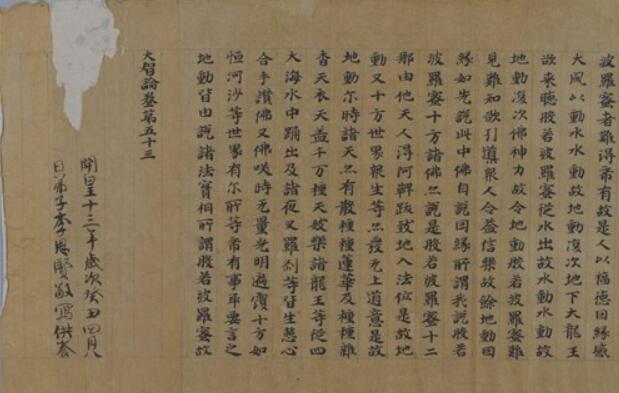 波羅蜜者難得希有故是人以福德因緣感
大風以動水水動故地動復次地下大龍王
欲來聽般若波羅蜜從水出故水動水動故
地動復次佛神力故令地動般若波羅蜜難
見難知欲引導眾人令益信樂故餘地動因
緣如先說此中佛自說因緣所謂我說般若
波羅蜜十方諸佛亦說是般若波羅蜜十二
那由他天人得阿鞞跋致地入法位是故地
動又十方世界眾生等亦發无上道意是故
地動尒時諸天亦有散種種蓮華及種種雜
香天衣天蓋千万種天妓樂諸龍王等從四
大海水中踊出及諸夜叉羅剎等皆生慈心
合手讚佛又佛咲時无量光明遍滿十方如
恒河沙等世界有尒所等希有事取要言之
地動皆由說諸法實相所謂般若波羅蜜故
大智論卷第五十三
開皇十三年歲次癸丑四月
日弟子李思賢敬寫供養